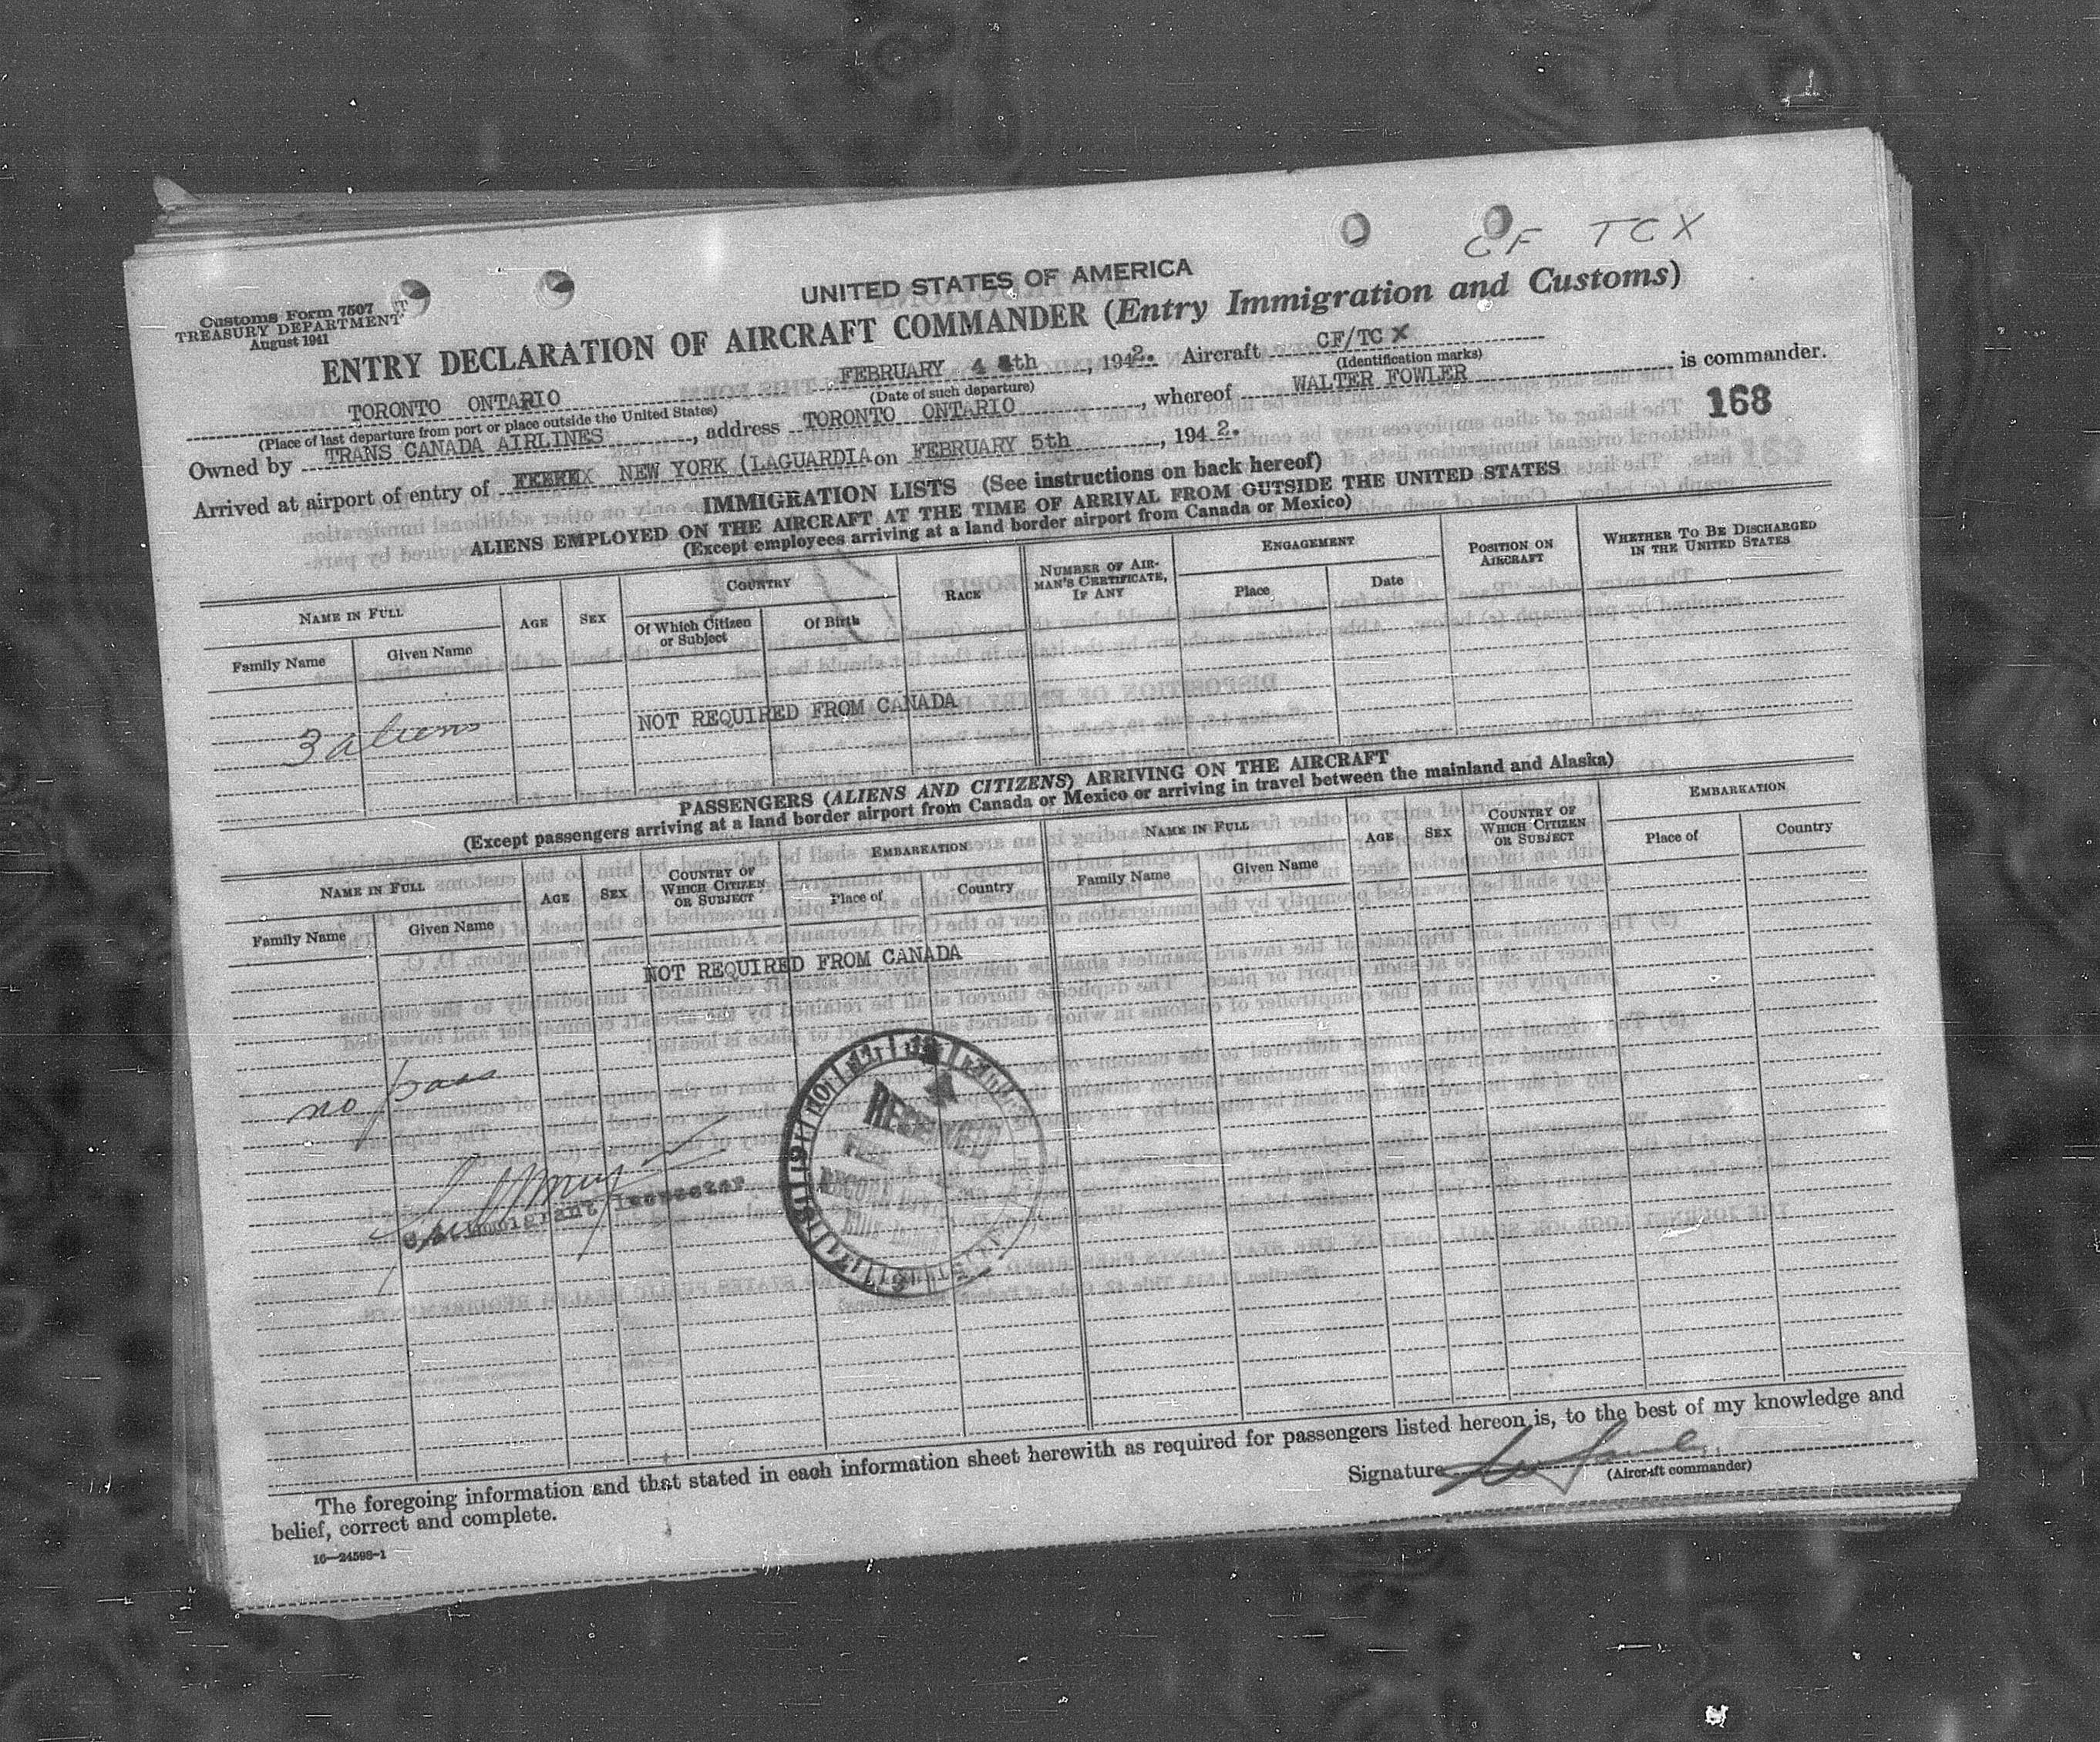 CF TCX
Customs Form 7507
TREASURY DEPARTMENT
August 1941
UNITED STATES OF AMERICA
ENTRY DECLARATION OF AIRCRAFT COMMANDER (Entry Immigration and Customs)
TORONTO ONTARIO FEBRUARY 4 th, 1942. Aircraft CF/TC X
(Place of last departure from port or place outside the United States) (Date of such departure) (Identification marks)
Owned by TRANS CANADA AIRLINES, address TORONTO ONTARIO, whereof WALTER FOWLER is commander.
Arrived at airport of entry of NEW YORK (LAGUARDIA on FEBRUARY 5th, 1942.
168
IMMIGRATION LISTS (See instructions on back hereof)
ALIENS EMPLOYED ON THE AIRCRAFT AT THE TIME OF ARRIVAL FROM OUTSIDE THE UNITED STATES
(Except employees arriving at a land border airport from Canada or Mexico)
NAME IN FULL AGE SEX COUNTRY RACE NUMBER OF AIRMAN'S CERTIFICATE, IF ANY ENGAGEMENT POSITION ON AIRCRAFT WHETHER TO BE DISCHARGED IN THE UNITED STATES
Family Name Given Name Of Which Citizen or Subject Of Birth Place Date
NOT REQUIRED FROM CANADA
3 aliens
PASSENGERS (ALIENS AND CITIZENS) ARRIVING ON THE AIRCRAFT
(Except passengers arriving at a land border airport from Canada or Mexico or arriving in travel between the mainland and Alaska)
NAME IN FULL AGE SEX COUNTRY OF WHICH CITIZEN OR SUBJECT EMBARKATION NAME IN FULL AGE SEX COUNTRY OF WHICH CITIZEN OR SUBJECT EMBARKATION
Family Name Given Name Place of Country Family Name Given Name Place of Country
NOT REQUIRED FROM CANADA
no pass
RECEIVED
Immigrant Inspector
The foregoing information and that stated in each information sheet herewith as required for passengers listed hereon is, to the best of my knowledge and
belief, correct and complete.
Signature
(Aircraft commander)
16—24598-1